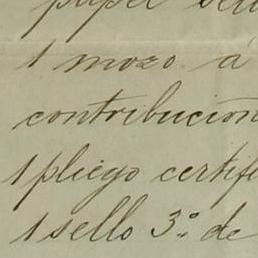 papel sell
1 mozo á
contribución
1 pliego certifi
1 sello 3.º de